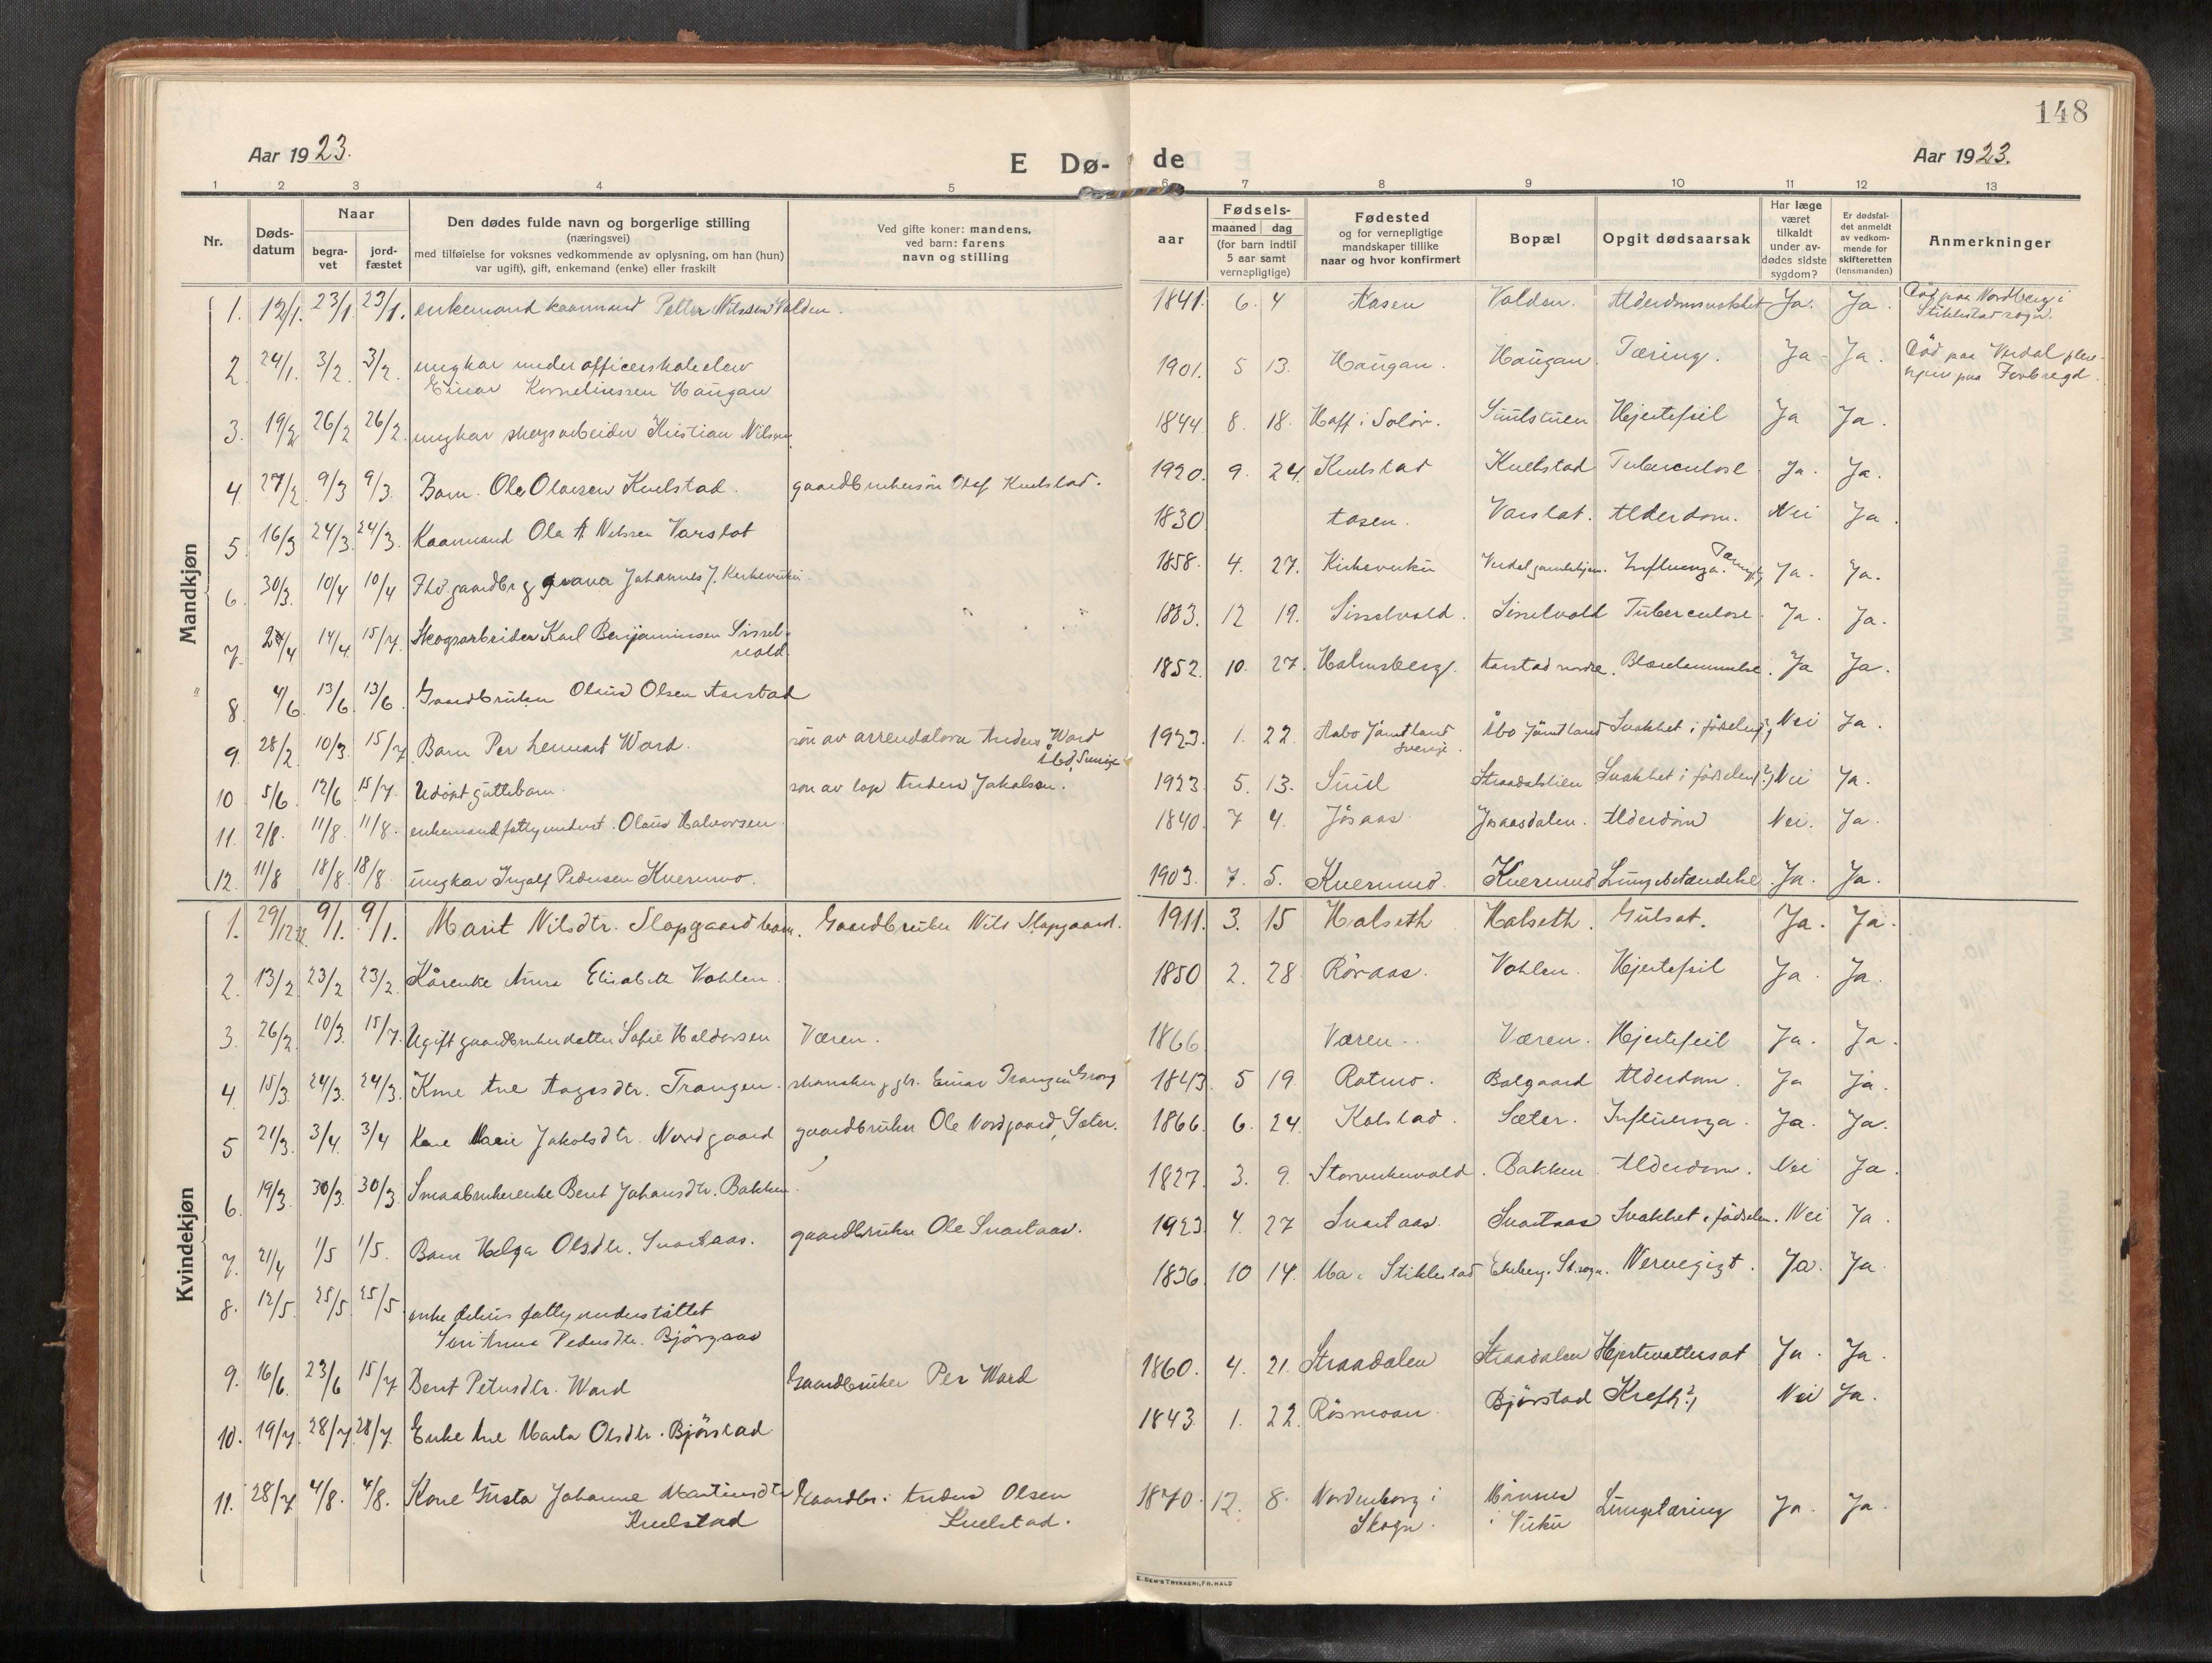 148
Aar 1923.
E Dø- de
Aar 1923.
1 2 3 4 5 6 7 8 9 10 11 12 13
Nr.
Døds-
datum
Naar
begra-
vet
jord-
fæstet
Den dødes fulde navn og borgerlige stilling
(næringsvei)
med tilføielse for voksnes vedkommende av oplysning, om han (hun)
var ugift), gift, enkemand (enke) eller fraskilt
Ved gifte koner: mandens,
ved barn: farens
navn og stilling
aar
Fødsels-
maaned dag
(for barn indtil
5 aar samt
vernepligtige)
Fødested
og for vernepligtige
mandskaper tillike
naar og hvor konfirmert
Bopæl
Opgit dødsaarsak
Har læge
været
tilkaldt
under av-
dødes sidste
sygdom?
Er dødsfal-
det anmeldt
av vedkom-
mende for
skifteretten
(lensmanden)
Anmerkninger
Mandkjøn
1. 12/1. 23/1 23/1. enkemand kaarmand Petter Nilssen Valden. 1841. 6. 4 Aasen Valden. Alderdomssvakhet Ja. Ja. Död paa Nordberg i
Stiklestad sogn.
2 24/1. 3/2. 3/2. ungkar underofficerskoleelev 1901. 5 13. Haugan. Haugan. Tæring. Ja Ja. Död paa Verdal pleie-
hjem paa Forbregd.
Einar Korneliussen Haugan
3. 19/2 26/2 26/2. ungkar skogsarbeider Kristian Nilsen 1844 8. 18. Hoff i Solör. Suulstuen Hjertefeil Ja Ja.
4 27/2 9/3 9/3. Barn. Ole Olavsen Kvelstad. gaardbrukersön Olaf Kvelstad. 1920. 9. 24. Kvelstad Kvelstad Tuberculose Ja. Ja.
5 16/3 24/3. 24/3. Kaarmand Ole A. Nilssen Varslot 1830 Aasen. Varslot. Alderdom. Nei Ja.
6 30/3. 10/4 10/4 Fhv. gaardbr. g graver Johannes J. Kirkevuku. 1858. 4. 27. Kirkevuku Verdal gamlehjem. Influenza. Ja. Ja.
7 24/4 14/4. 15/7. Skogsarbeider Karl Benjaminsen Sissel- 1883. 12 19. Sisselvold. Sisselvold Tuberculose. Ja. Ja.
vold.
8. 4/6 13/6 13/6. Gaardbruker Olaus Olsen Aarstad 1852. 10. 27. Holmsberg. Aarstad nordre. Blærelammelse. Ja Ja.
9 28/2 10/3. 15/7 Barn Per Lennart Ward. søn av arrendatorn Anders Ward 1923. 1. 22. Aabo Jämtland Åbo Jämtland Svakhet i födselen(?) Nei Ja.
Åbo, Sverige Sverige.
10 5/6. 12/6 15/7. Udöpt guttebarn. søn av lap Anders Jakobsen. 1923. 5. 13. Suul Straadalslien Svakhet i födselen(?) Nei Ja.
11. 2/8. 11/8. 11/8. enkemand fattigunderst. Olaus Halvorsen 1840. 7 4. Jösaas Jösaasdalen. Alderdom Nei. Ja.
12. 11/8 18/8. 18/8. ungkar Ingolf Pedersen Kvermo. 1903. 7. 5. Kvermo. Kvermo Lungebetændelse. Ja. Ja.
Kvindekjøn
1. 29/12 22. 9/1. 9/1. Marit Nilsdtr. Slapgaard barn. Gaardbruker Nils Slapgaard. 1911. 3. 15 Halseth Halseth. Gulsot. Ja. Ja.
2. 13/2 23/2 23/2. Kårenke Anna Elisabeth Vohlen. 1850 2. 28. Röraas. Vohlen. Hjertefeil Ja. Ja.
3. 26/2. 10/3. 15/7. Ugift gaardbrukerdatter Sofie Haldorsen Væren. 1866 Væren. Væren. Hjertefeil Ja. Ja.
4 15/3 24/3. 24/3. Kone Ane Aagesdtr. Trangen. skomaker g gbr. Einar Trangen Grong 1843 5 19. Rotmo. Balgaard Alderdom. Ja Ja.
5 21/3. 3/4. 3/4 Kone Marie Jakobsdtr. Nordgaard gaardbruker Ole Nordgaard, Sæter. 1866. 6. 24. Kolstad. Sæter. Influenza. Ja. Ja.
6. 19/3. 30/3. 30/3. Smaabrukerenke Beret Johansdtr. Bakken. 1827. 3. 9. Storvukuvold. Bakken. Alderdom. Nei Ja.
7. 21/4 1/5 1/5. Barn Helga Olsdtr. Svartaas. gaardbruker Ole Svartaas. 1923. 4. 27 Svartaas. Svartaas Svakhet i födselen. Nei Ja.
8. 12/5. 25/5 25/5. enke delvis fattigunderstöttet 1836. 10 14. Ma i Stiklestad Ekeberg. St. sogn. Nervegigt. Ja. Ja.
Seri Anna Pedersdtr. Björgaas
9. 16/6. 23/6 15/7 Beret Petersdtr. Ward Gaardbruker Per Ward 1860. 4. 21. Straadalen Straadalen Hjertevattersot Ja. Ja.
10. 19/7. 28/7. 28/7. Enke Ane Marta Olsdtr. Björstad 1843. 1. 22. Rösmoan. Björstad Kreft(?) Nei Ja.
11. 28/7 4/8. 4/8. Kone Gusta Johanne Martinsdtr. Gaardbr. Anders Olsen 1870. 12. 8. Nordenborg i Minnes Lungetæring Ja. Ja.
Kvelstad Kvelstad. Skogn. i Vuku
E. SEM'S TRYKKERI, FR.HALD